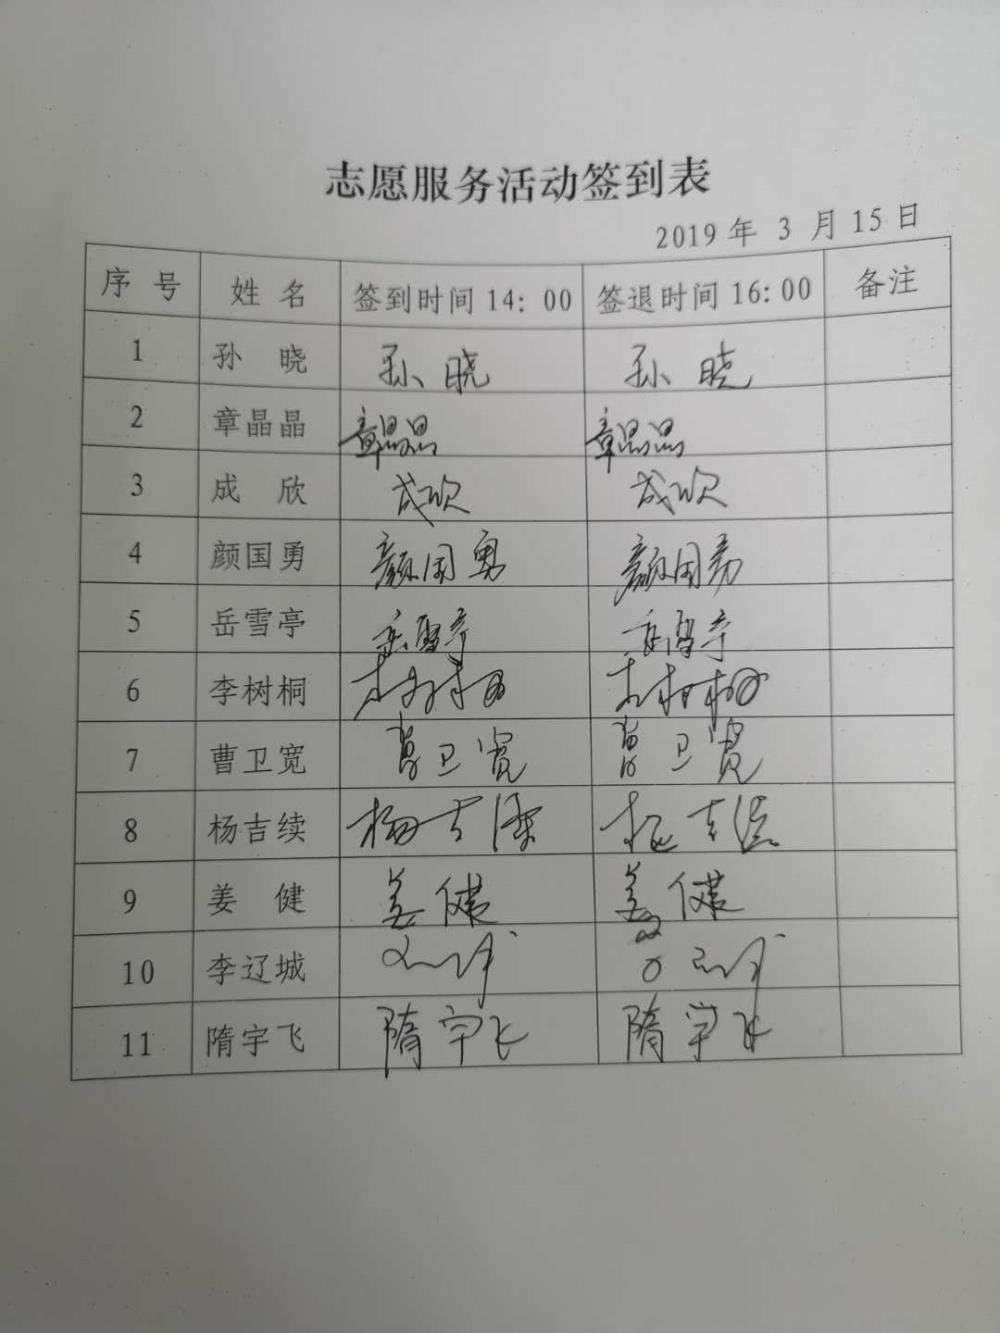 志愿服务活动签到表
2019 年 3 月 15 日
序 号 姓 名 签到时间 14: 00 签退时间 16: 00 备注
1 孙 晓 孙 晓 孙 晓
2 章晶晶 章晶晶 章晶晶
3 成 欣 成欣 成欣
4 颜国勇 颜国勇 颜国勇
5 岳雪亭 岳雪亭 岳雪亭
6 李树桐 李树桐 李树桐
7 曹卫宽 曹卫宽 曹卫宽
8 杨吉续 杨吉续 杨吉续
9 姜 健 姜健 姜健
10 李辽城
11 隋宇飞 隋宇飞 隋宇飞